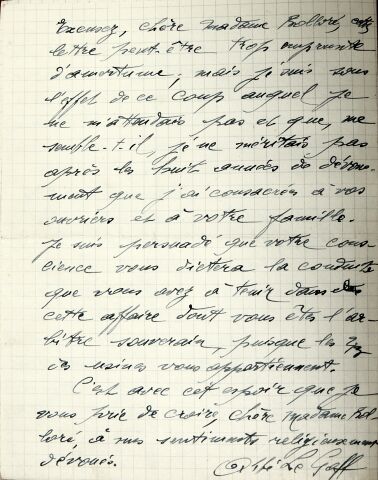 Excusez, chère Madame Bolloré, cette
lettre peut-être trop empreinte
d'amertume ; mais je suis sous
l'effet de ce coup auquel je
ne m'attendais pas et que, me
semble-t-il, je ne méritais pas
après les huit années de dévoue-
ment que j'ai consacrées à vos
ouvriers et à votre famille.
Je suis persuadé que votre cons-
cience vous dictera la conduite
que vous avez à tenir dans
cette affaire dont vous êtes l'ar-
bitre souverain, puisque les
usines vous appartiennent.
C'est avec cet espoir que je
vous prie de croire, chère Madame Bol-
loré, à mes sentiments religieusement
dévoués.
Abbé Le Goff